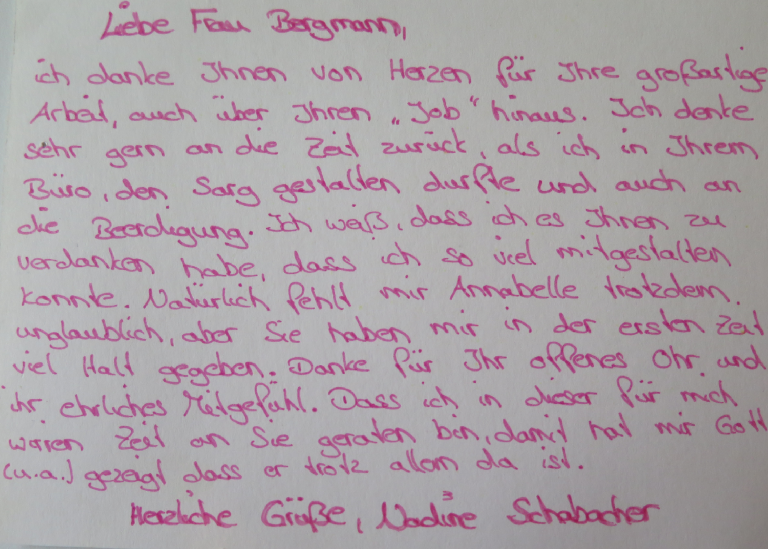 Liebe Frau Bergmann,
ich danke Ihnen von Herzen für Ihre großartige
Arbeit, auch über Ihren „Job" hinaus. Ich denke
sehr gern an die Zeit zurück, als ich in Ihrem
Büro, den Sarg gestalten durfte und auch an
die Beerdigung. Ich weiß, dass ich es Ihnen zu
verdanken habe, dass ich so viel mitgestalten
konnte. Natürlich fehlt mir Annabelle trotzdem
unglaublich, aber Sie haben mir in der ersten Zeit
viel Halt gegeben. Danke für Ihr offenes Ohr und
ihr ehrliches Mitgefühl. Dass ich in dieser für mich
wirren Zeit an Sie geraten bin, damit hat mir Gott
(u.a.) gezeigt dass er trotz allem da ist.
Herzliche Grüße, Nadine Schabacher